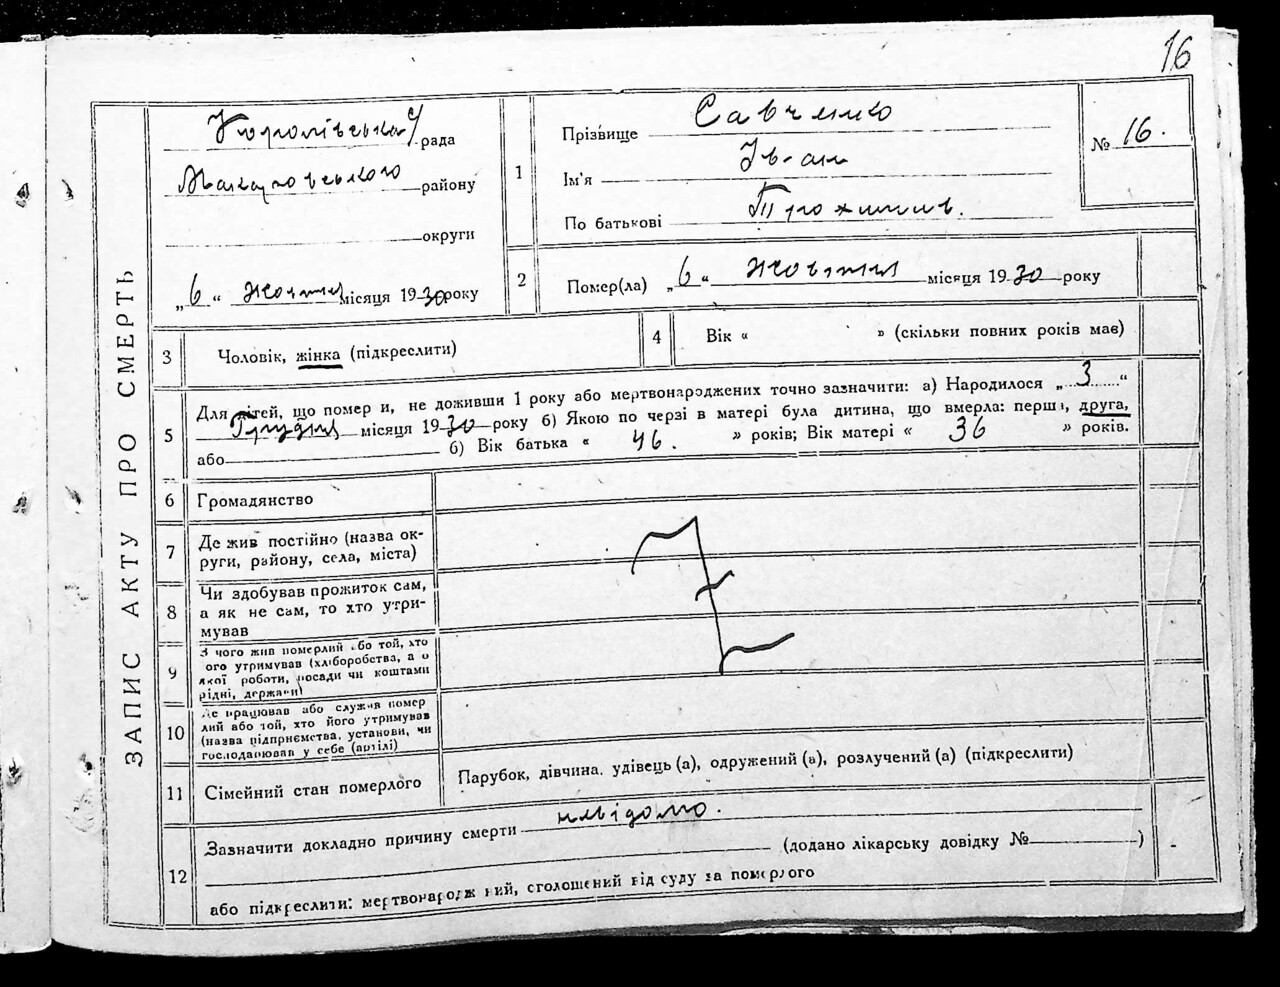 16
ЗАПИС АКТУ ПРО СМЕРТЬ
Королівська рада
Макарівського району
округи
„6“ жовтня місяця 1930 року
1
Прізвище Савченко
Ім'я Іван
По батькові Трохимів.
№ 16.
2
Помер(ла) „6“ жовтня місяця 1930 року
3
Чоловік, жінка (підкреслити)
4
Вік « » (скільки повних років має)
5
Для дітей, що померли, не доживши 1 року або мертвонароджених точно зазначити: а) Народилося „3“
Грудня місяця 1930 року б) Якою по черзі в матері була дитина, що вмерла: перша, друга,
або б) Вік батька « 46. » років; Вік матері « 36 » років.
6
Громадянство
7
Де жив постійно (назва ок-
руги, району, села, міста)
8
Чи здобував прожиток сам,
а як не сам, то хто утри-
мував
9
З чого жив померлий або той, хто
його утримував (хліборобства, з
якої роботи, посади чи коштами
рідні, держави)
10
Де працював або служив помер
лий або той, хто його утримував
(назва підприємства, установи, чи
господарював у себе (артілі)
11
Сімейний стан померлого
Парубок, дівчина, удівець (а), одружений (а), розлучений (а) (підкреслити)
12
Зазначити докладно причину смерти невідомо.
(додано лікарську довідку № )
або підкреслити: мертвонароджений, оголошений від суду за померлого